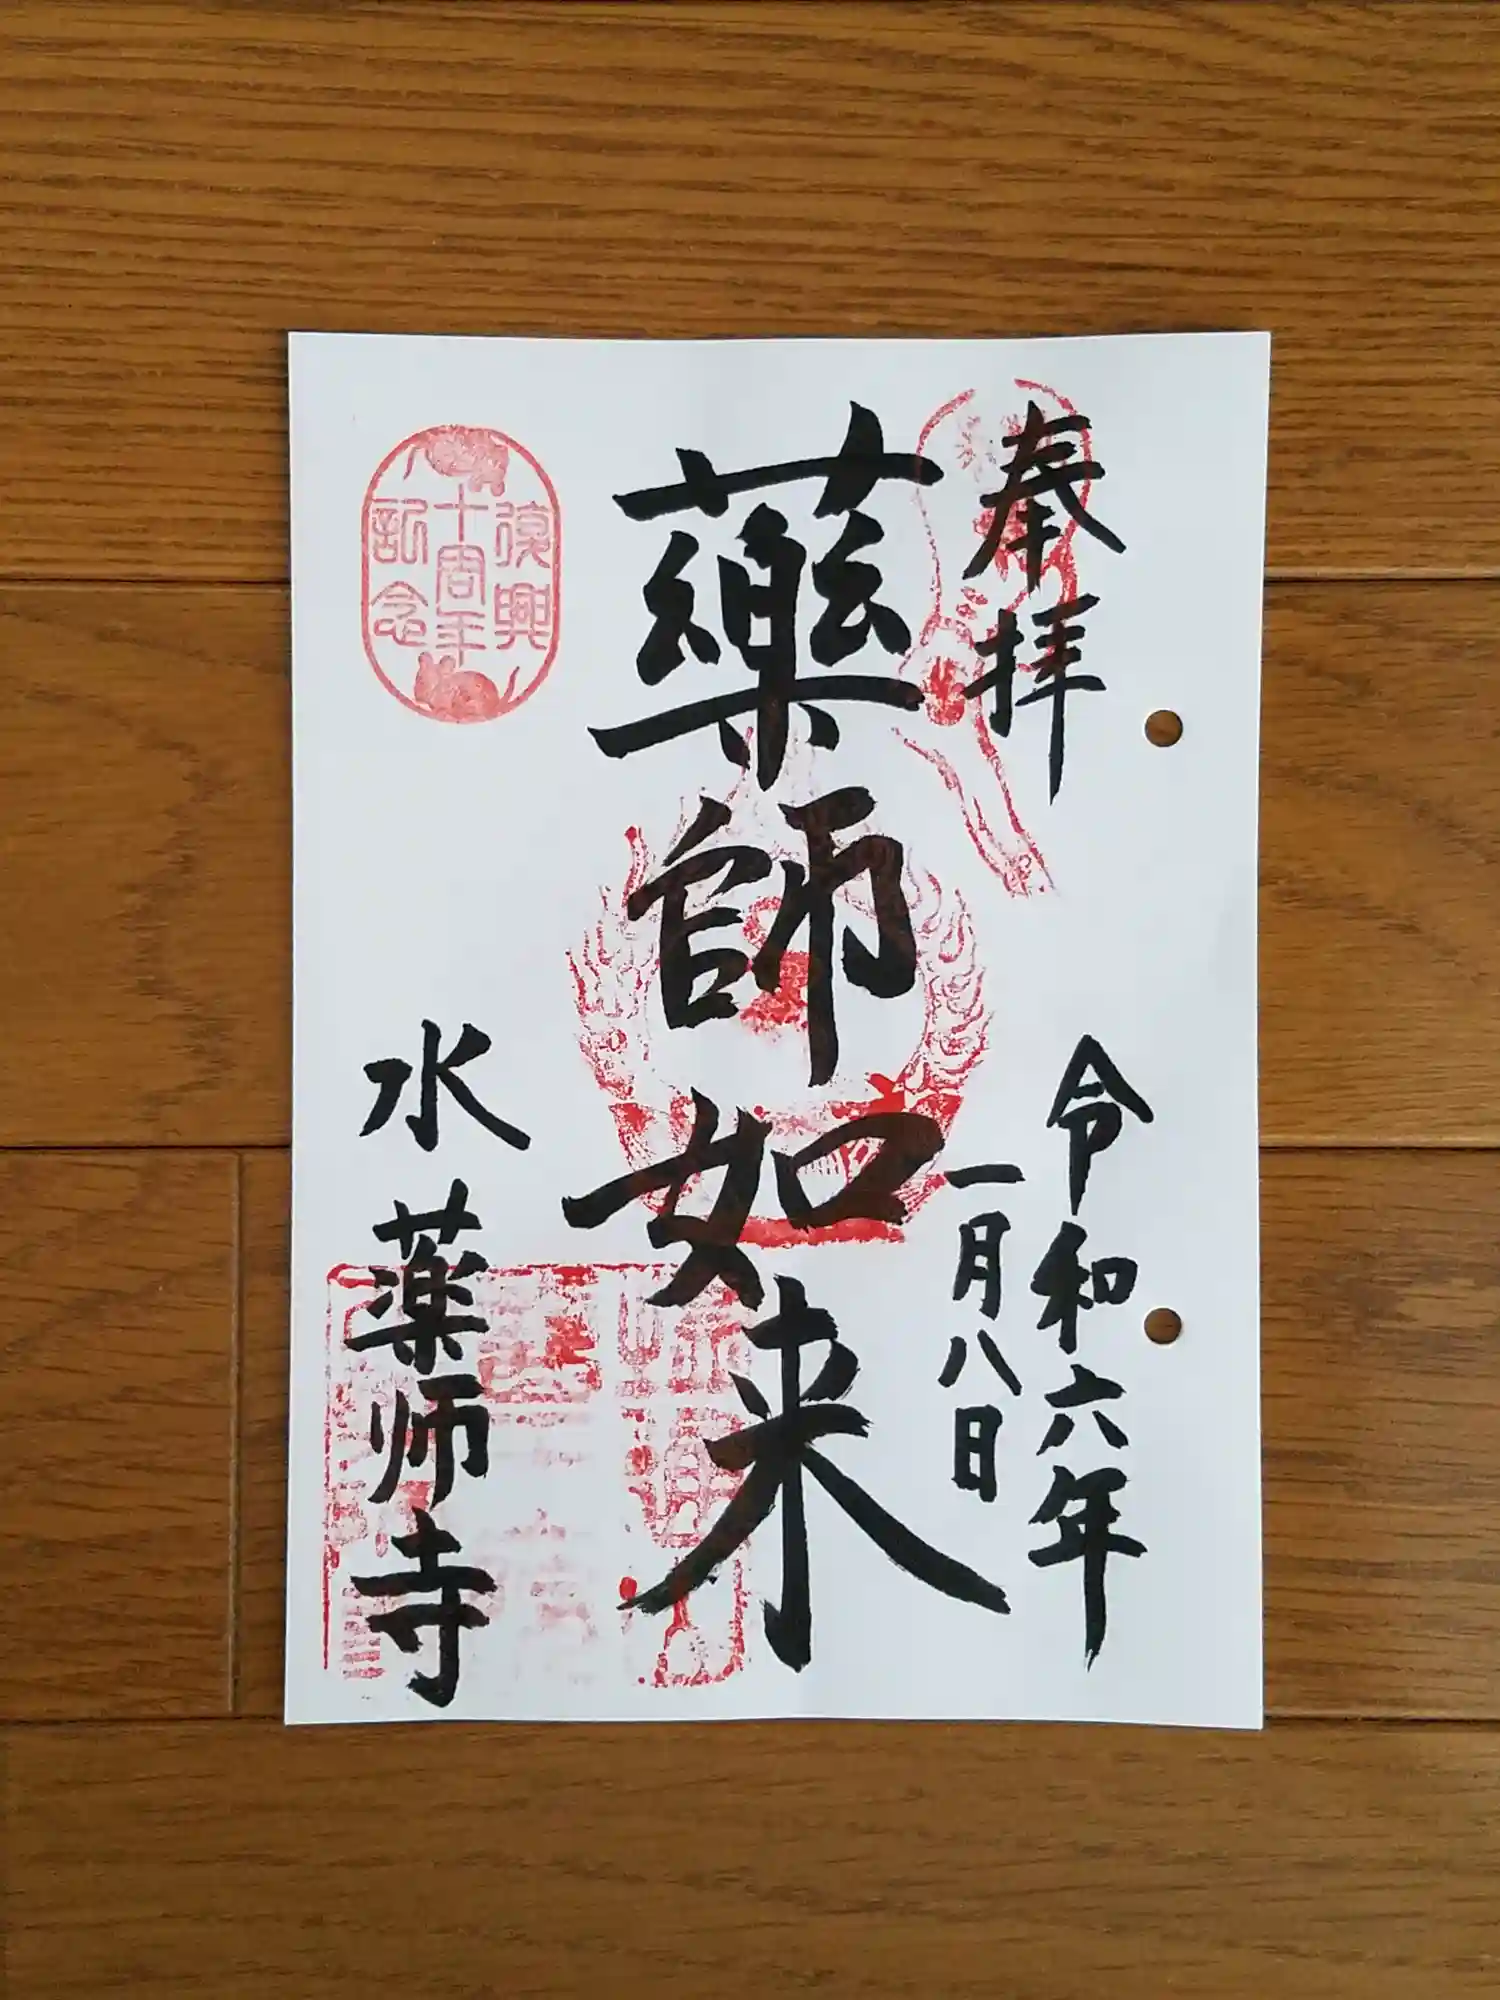 奉拝
令和六年
一月八日
藥師如来
復興
十周年
記念
水薬师寺